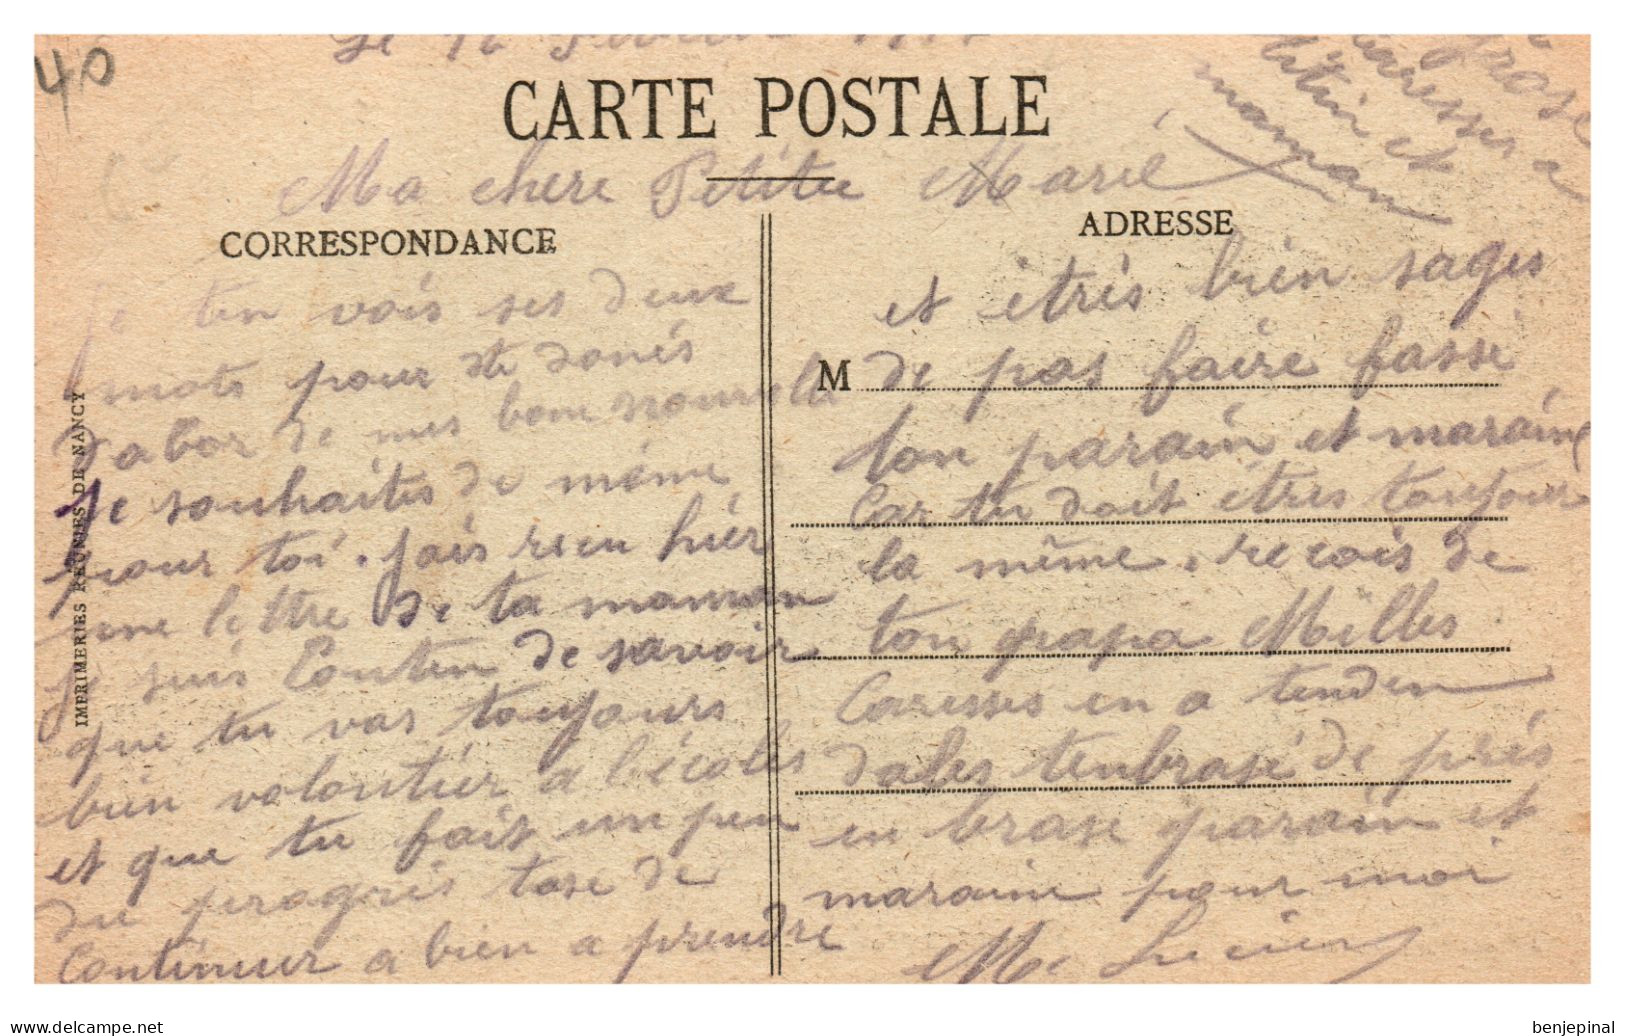 40
Le 12
CARTE POSTALE
Ma chere Petite Marie
CORRESPONDANCE
je ten vois ses deux
mots pour te donés
dabor de mes bone nouvelle
Je souhaites de même
pour toi. jais recu hiér
une lettre de ta maman
je suis Conten de savoir
que tu vas toujours
bien volontiér a lécoles
et que tu fait un peu
du progrés tase de
Continuer a bien a prendre
IMPRIMERIES REUNIES DE NANCY
ADRESSE
et étrés bien sages
M de pas faire fassé
ton parain et maraine
Car tu doit étres toujour
la même. recois de
ton papa Milles
Caresses en a tenden
dales tenbrasé de prés
en brase parain et
maraine pour moi
M. Lucien
brase
caresses a
titin et
maman
delcampe.net
benjepinal